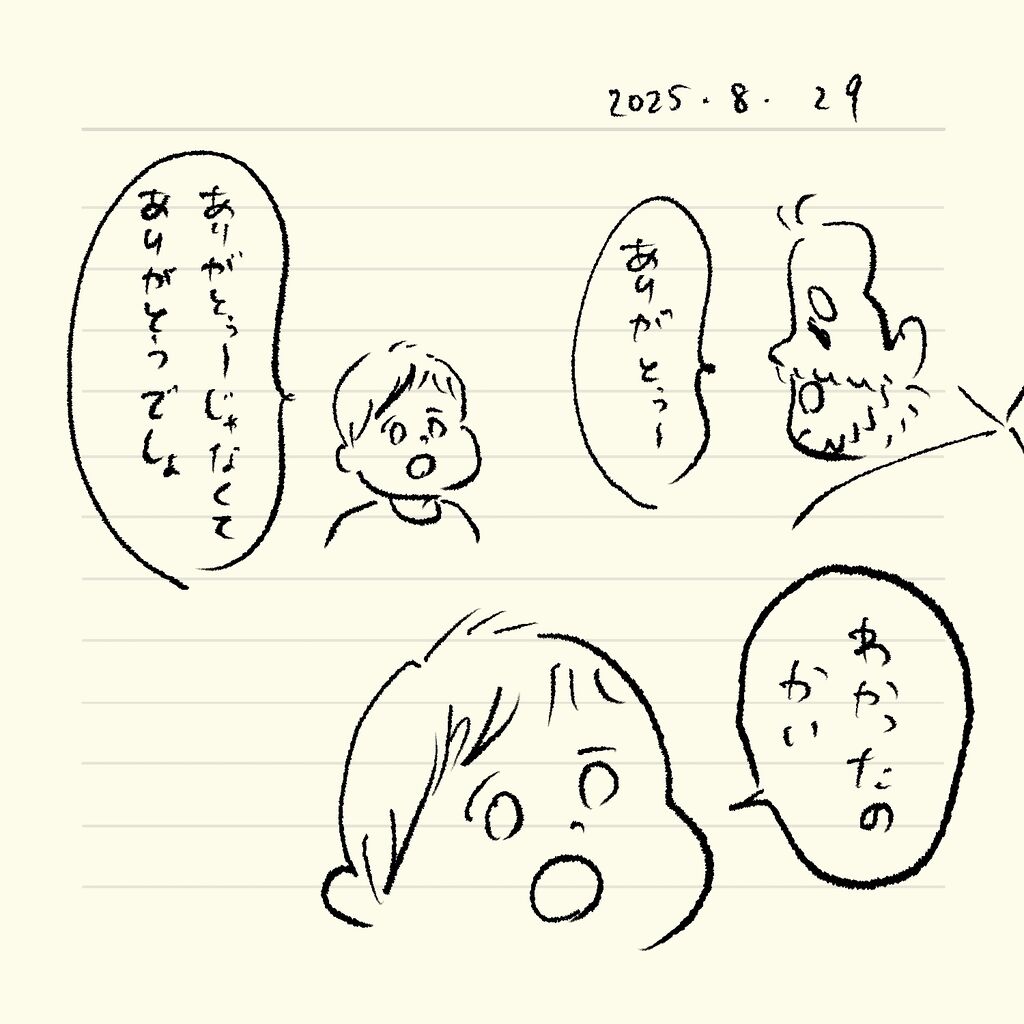 2025.8.29
ありがとぅー
ありがとぅーじゃなくて
ありがとうでしょ
わかったの
かい